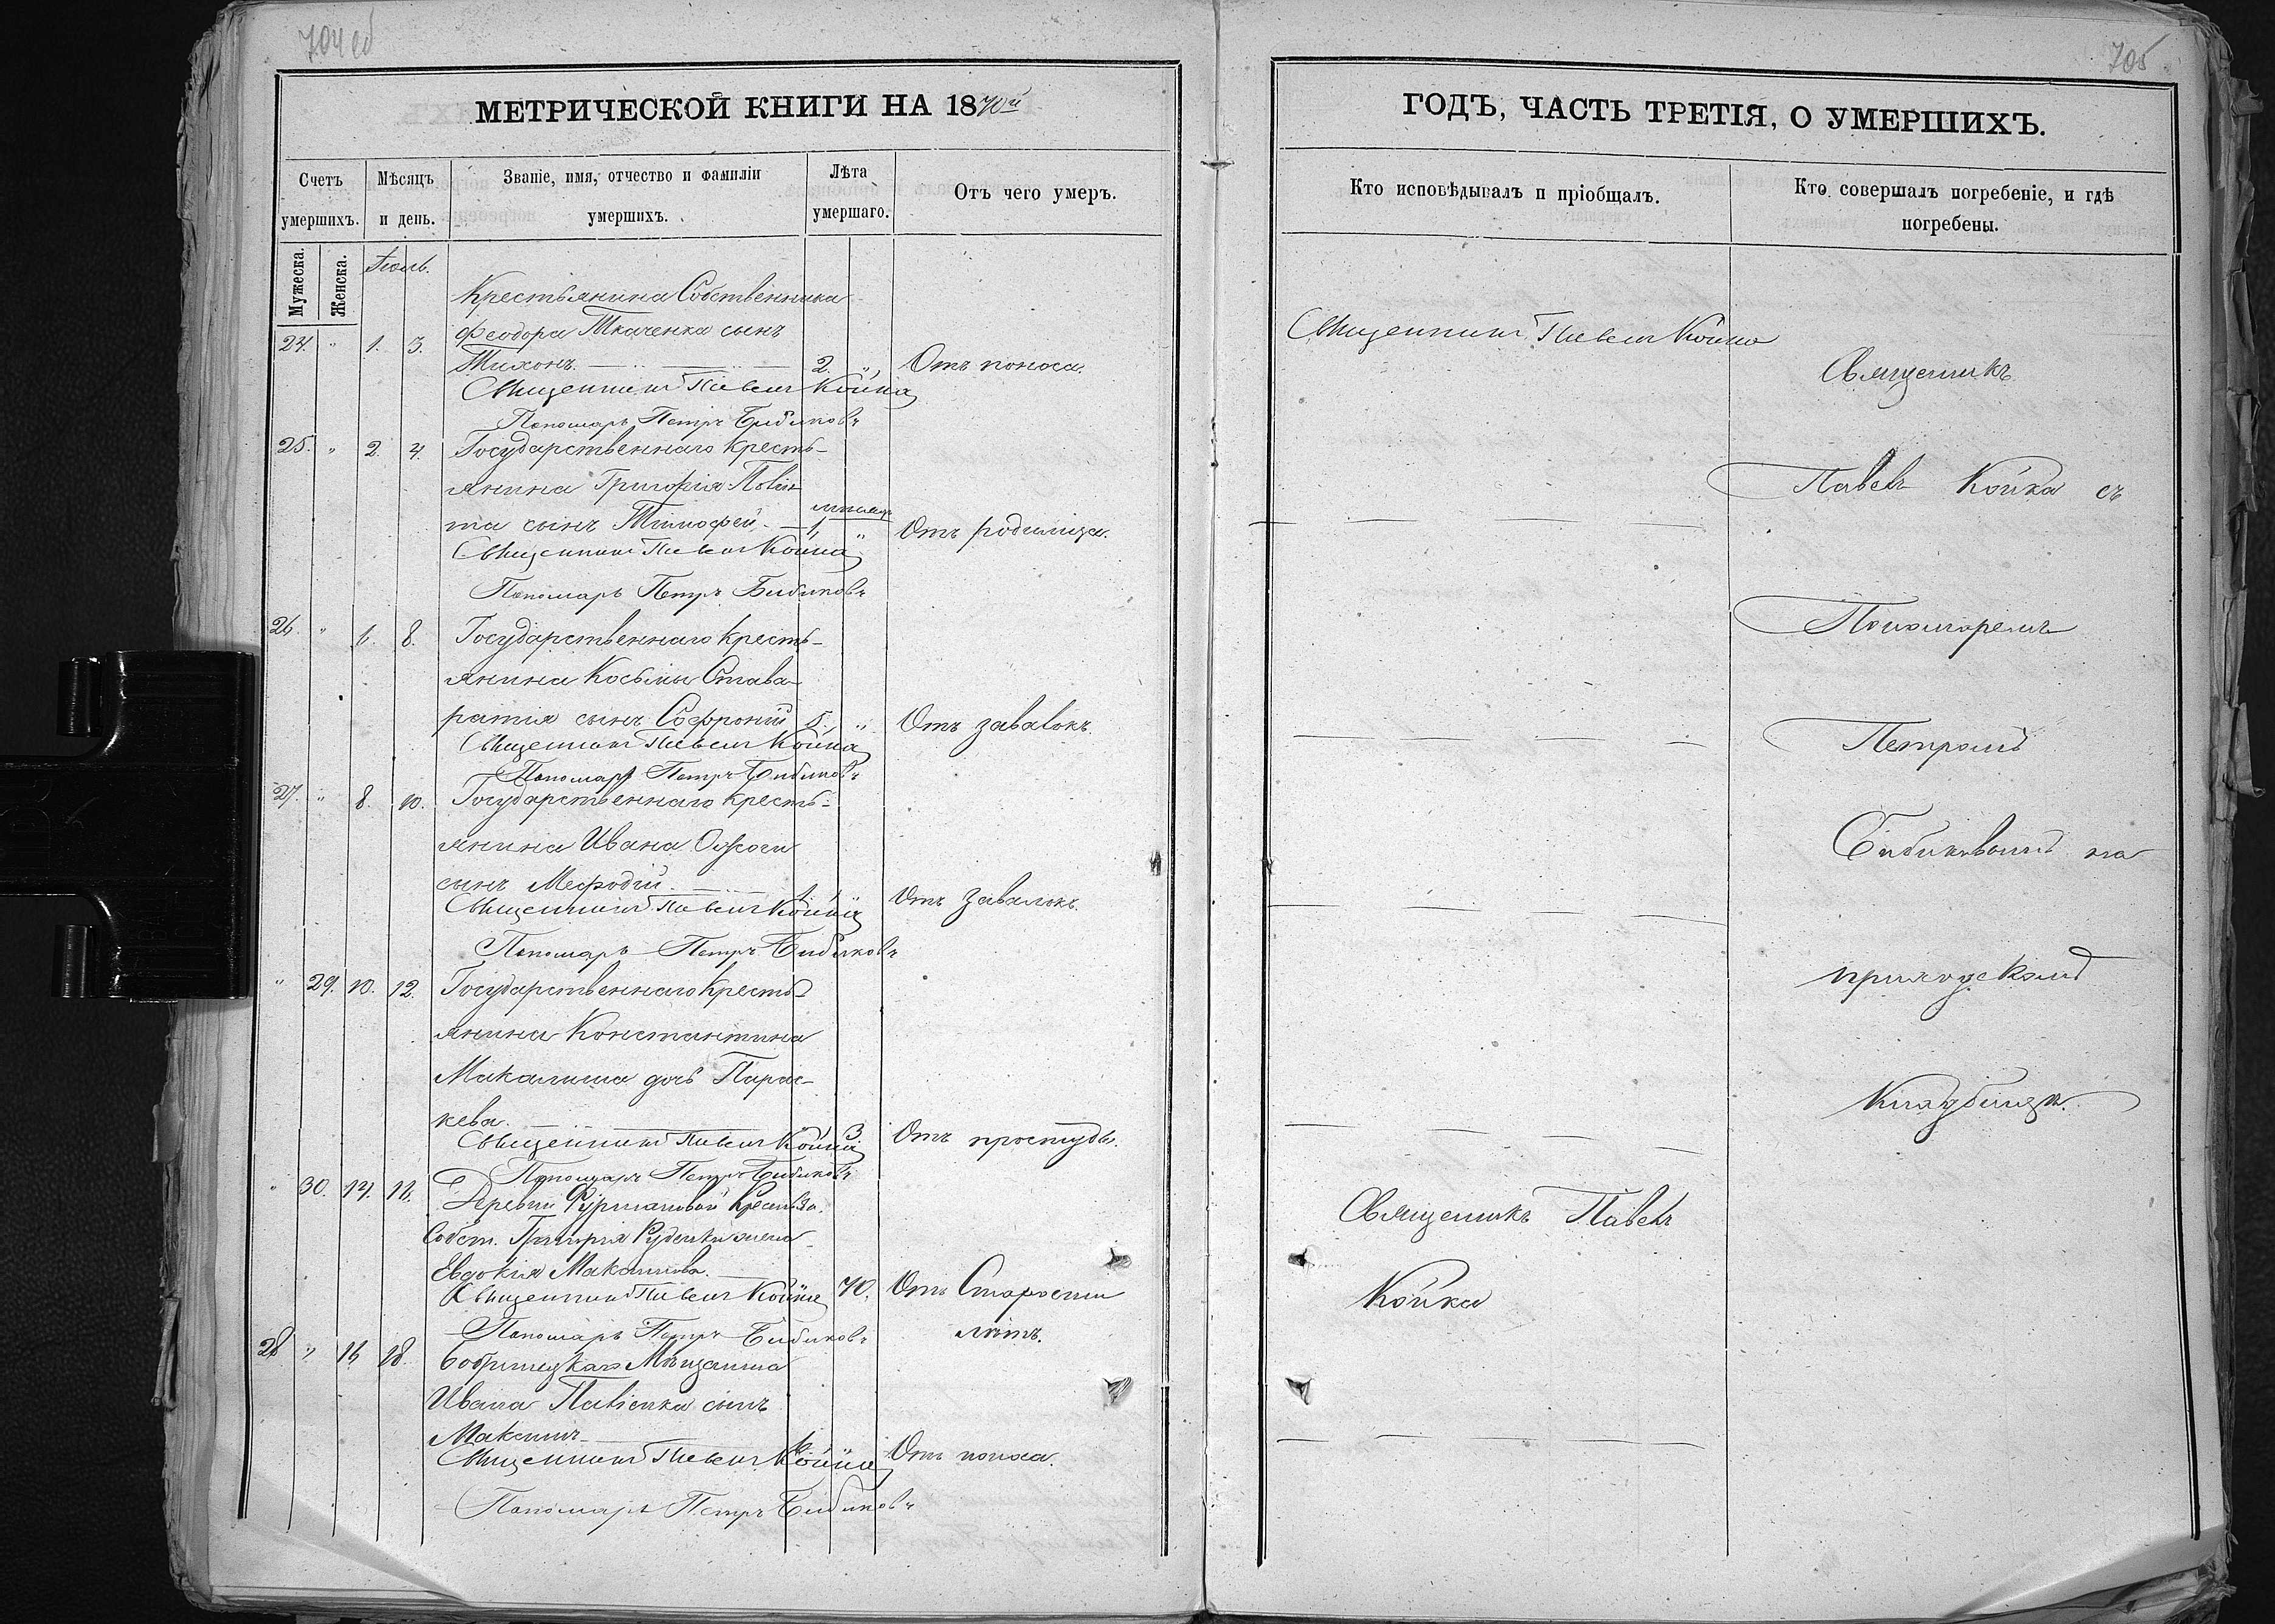 704 об
МЕТРИЧЕСКОЙ КНИГИ НА 1870й
Счетъ умершихъ.
Мѣсяцъ и день.
Званіе, имя, отчество и фамиліи умершихъ.
Лѣта умершаго.
Отъ чего умеръ.
Мужеска.
Женска.
Іюль.
Крестьянина Собственника
Феодора Ткаченка сынъ
24. " 1. 3. Тихонъ. 2. " Отъ поноса.
Священникъ Павелъ Койка
Пономарь Петръ Бибиковъ
25. " 2. 4. Государственнаго кресть-
янина Григорія
та сынъ Тимофей. 1 " Отъ родимца.
Священникъ Павелъ Койка
Пономарь Петръ Бибиковъ
26. " 6. 8. Государственнаго кресть-
янина Косьмы Става-
ратія сынъ Софроній 5. " Отъ завалокъ.
Священникъ Павелъ Койка
Пономарь Петръ Бибиковъ
27. " 8. 10. Государственнаго кресть-
янина Ивана
сынъ Мефодій. 1 " Отъ завалокъ.
Священникъ Павелъ Койка
Пономарь Петръ Бибиковъ
" 29. 10. 12. Государственнаго кресть-
янина Константина
дочь Парас-
кева. 3 Отъ простуды.
Священникъ Павелъ Койка
Пономарь Петръ Бибиковъ
" 30. 14. Деревни Фурмановой Крестьян.
Собст. Григорія Руденка жена
Евдокія Максимова. 70. Отъ Старости
Священникъ Павелъ Койка
лѣтъ.
Пономарь Петръ Бибиковъ
28 " 16 18. Бобринецкаго Мѣщанина
Ивана Павленка сынъ
Максимъ Отъ поноса.
Священникъ Павелъ Койка
Пономарь Петръ Бибиковъ
705
ГОДЪ, ЧАСТЬ ТРЕТІЯ, О УМЕРШИХЪ.
Кто исповѣдывалъ и пріобщалъ.
Кто совершалъ погребеніе, и гдѣ погребены.
Священникъ Павелъ Койка
Священникъ
Павелъ Койка съ
Пономаремъ
Петромъ
Бибиковымъ на
приходскомъ
Кладбищѣ.
Священникъ Павелъ
Койка